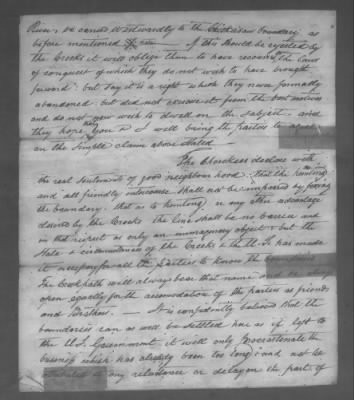 River & be carried westwardly to the Chickasaw boundary as
before mentioned. If this should be rejected by
the Creeks it will oblige them to have recourse to the laws
of conquest of which they do not wish to have brought
forward: but say it is a right which they never formally
abandoned but did not exercise it from the best motives
and do not now wish to dwell on the subject and
they hope you & I will bring the parties to agree
on the simple claim above stated
The Cherokees declare with
the real sentiments of good neighbour hood: that the hunting
and all friendly intercourse shall not be impaired by fixing
the boundary: that as to hunting or any other advantage
desired by the Creeks the line shall be no barrier and
in that respect as only an immaginary object: but the
State & circumstances of the Creeks & the U.S. has made
it necessary for all the parties to know the
The path will always bear that name and be always
open equally for the accomodation of the parties as friends
and Brothers. It is confidently believed that the
boundaries can as well be settled now as if left to
the U.S. Government it will only procrastinate the
business which has already been too long: and not be
any reluctance or delay on the part of